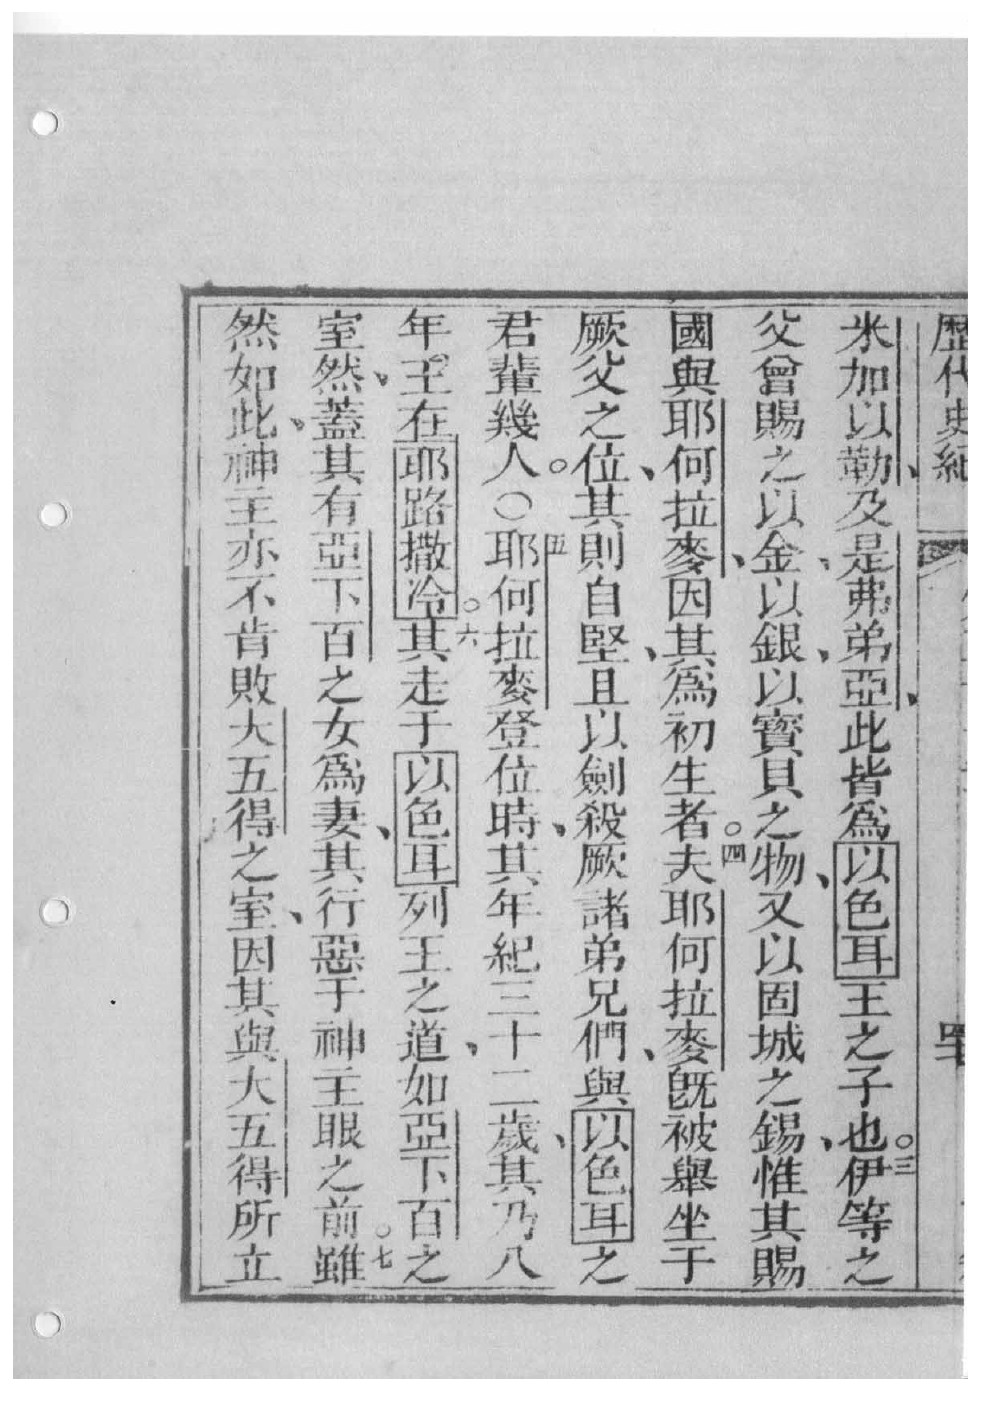 歷代史紀
米加以勒、及是弗弟亞、此皆爲以色耳王之子也。三伊等之
父曾賜之以金、以銀、以寶貝之物、又以固城之錫、惟其賜
國與耶何拉麥、因其爲初生者。四夫耶何拉麥旣被舉坐于
厥父之位、其則自堅、且以劍殺厥諸弟兄們、與以色耳之
君輩幾人。○五耶何拉麥登位時、其年紀三十二歲、其乃八
年王在耶路撒冷。六其走于以色耳列王之道、如亞下百之
室然、蓋其有亞下百之女爲妻、其行惡于神主眼之前。七雖
然如此、神主亦不肯敗大五得之室、因其與大五得所立